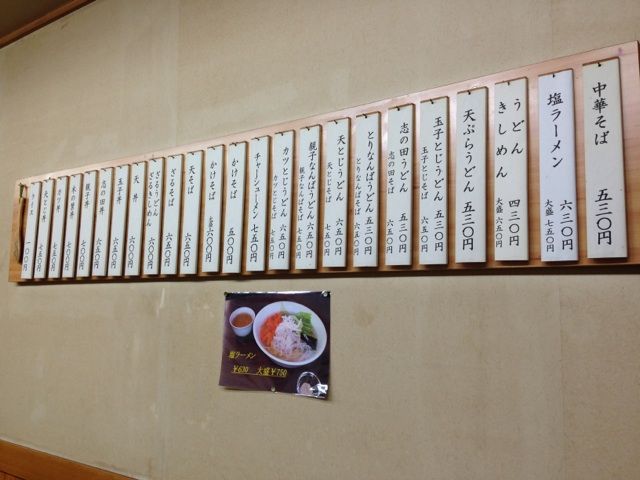 中華そば 五三〇円
塩ラーメン 六三〇円
大盛 七五〇円
うどん
きしめん 四三〇円
大盛 六五〇円
天ぷらうどん 五三〇円
玉子とじうどん 五三〇円
玉子とじそば 六五〇円
志の田うどん 五三〇円
志の田そば 六五〇円
とりなんばうどん 五三〇円
とりなんばそば 六五〇円
天とじうどん 六五〇円
天とじそば 七五〇円
親子なんばうどん 六五〇円
親子なんばそば 七五〇円
カツとじうどん 六五〇円
カツとじそば 七五〇円
チャーシューメン 七五〇円
かけそば 五〇〇円
かけそば 大盛 六〇〇円
天そば 六五〇円
ざるそば 六五〇円
ざるうどん
ざるきしめん 六五〇円
天丼 六五〇円
玉子丼 六五〇円
志の田丼 六五〇円
親子丼
木の葉丼 七〇〇円
カツ丼 七五〇円
天とじ丼 七五〇円
塩ラーメン
￥630 大盛￥750